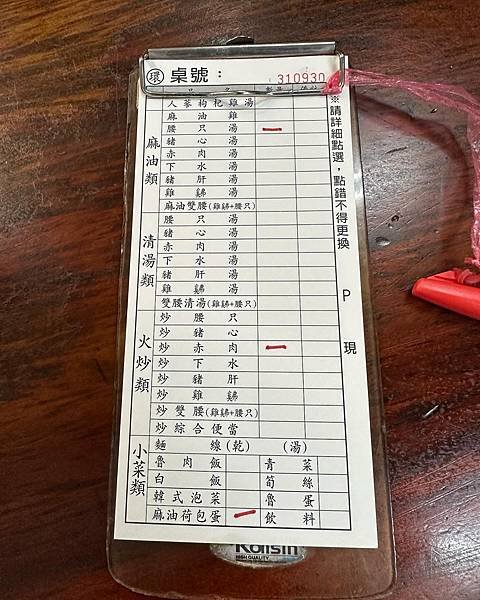 環 桌號： 310930
品 名 數量
麻油類
人蔘枸杞雞湯
麻油雞
腰只湯 一
豬心湯
赤肉湯
下水湯
豬肝湯
雞鵤湯
麻油雙腰(雞鵤+腰只)
清湯類
腰只湯
豬心湯
赤肉湯
下水湯
豬肝湯
雞鵤湯
雙腰清湯(雞鵤+腰只)
火炒類
炒腰只
炒豬心
炒赤肉 一
炒下水
炒豬肝
炒雞鵤
炒雙腰(雞鵤+腰只)
炒綜合便當
小菜類
麵線(乾) (湯)
魯肉飯 青菜
白飯 筍絲
韓式泡菜 魯蛋
麻油荷包蛋 一 飲料
※請詳細點選，點錯不得更換 P 現
Kolisin
HIGH QUALITY